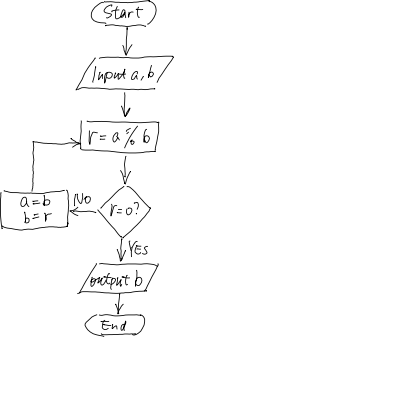 Start
Input a, b
r = a % b
r=0?
NO
a=b
b=r
YES
output b
End